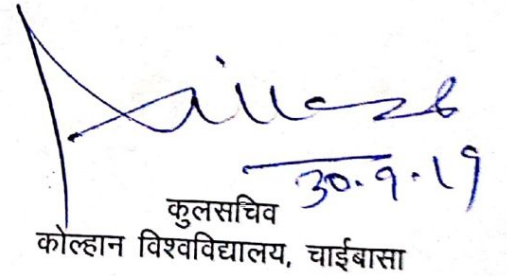 30.9.19
कुलसचिव
कोल्हान विश्वविद्यालय, चाईबासा